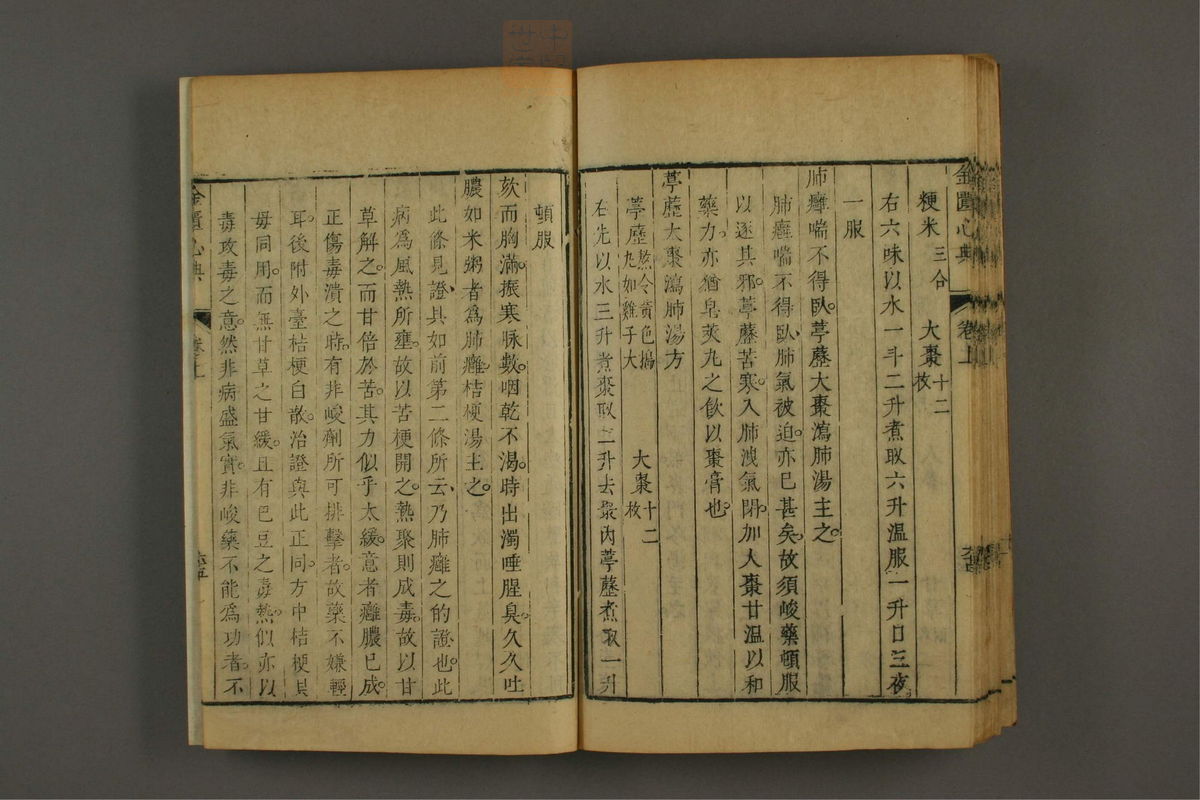 金匱心典
卷上
粳米三合　大棗十二枚
右六味以水一斗二升煮取六升温服一升日三夜
一服
肺癰喘不得臥葶藶大棗瀉肺湯主之
肺癰喘不得臥肺氣被迫亦已甚矣故須峻藥頓服
以逐其邪葶藶苦寒入肺洩氣閉加大棗甘温以和
藥力亦猶皂莢丸之飲以棗膏也
葶藶大棗瀉肺湯方
葶藶熬令黃色搗丸如雞子大　大棗十二枚
右先以水三升煮棗取二升去棗內葶藶煮取一升
頓服
欬而胸滿振寒脉數咽乾不渴時出濁唾腥臭久久吐
膿如米粥者爲肺癰桔梗湯主之
此條見證具如前第二條所云乃肺癰之的證也此
病爲風熱所壅故以苦梗開之熱聚則成毒故以甘
草解之而甘倍於苦其力似乎太緩意者癰膿已成
正傷毒潰之時有非峻劑所可排擊者故藥不嫌輕
耳後附外臺桔梗白散治證與此正同方中桔梗貝
母同用而無甘草之甘緩且有巴豆之毒熱似亦以
毒攻毒之意然非病盛氣實非峻藥不能爲功者不
金匱心典
卷上